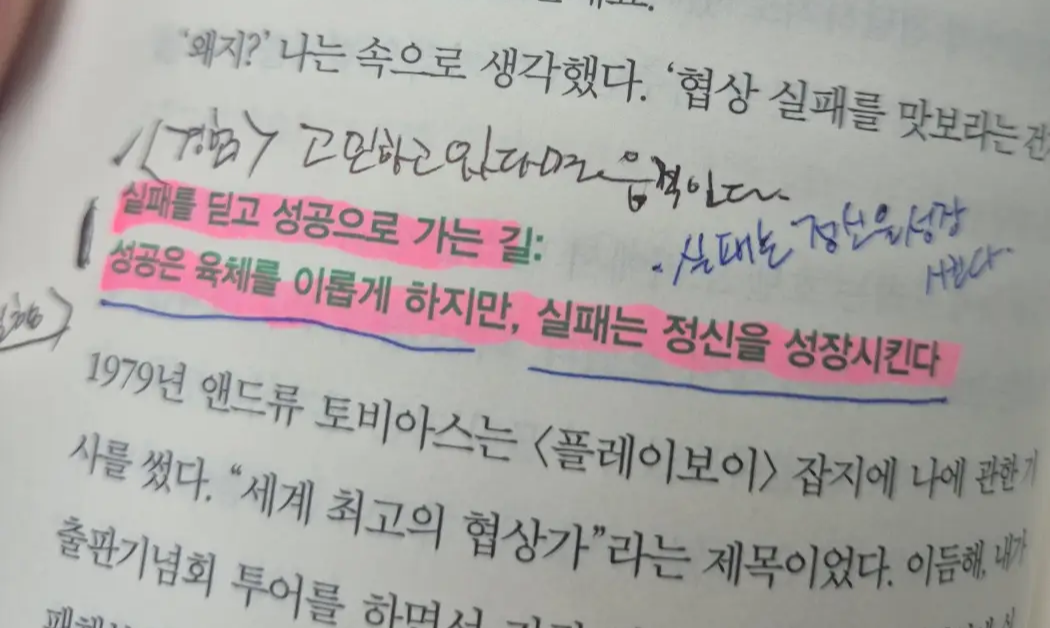 '왜지?' 나는 속으로 생각했다. '협상 실패를 맛보라는
<경험> 고민하고 있다면 움직인다.
실패를 딛고 성공으로 가는 길:
· 실패는 정신을 성장
시킨다.
성공은 육체를 이롭게 하지만, 실패는 정신을 성장시킨다
1979년 앤드류 토비아스는 〈플레이보이〉 잡지에 나에 관한 기
사를 썼다. “세계 최고의 협상가”라는 제목이었다. 이듬해, 내가
출판기념회 투어를 하면서